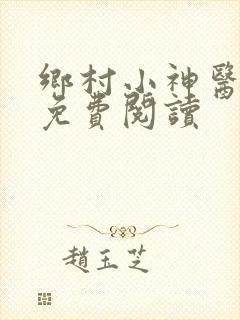 鄉村小神醫
免費閱讀
趙玉芝